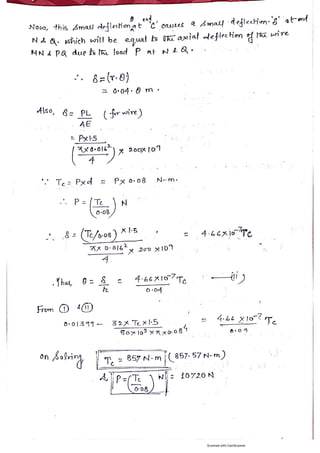 Now, this small deflection at end 'C' causes a small deflection 'δ' at end
N & Q. which will be equal to the axial deflection of the wire
MN & PQ due to the load P at N & Q.
∴ δ = (r.θ)
= 0.04.θ m.
Also, δ = PL/AE (for wire)
= P×1.5 / (π×0.016²/4) × 200×10⁹
∵ Tc = P×d = P×0.08 N-m.
∴ P = (Tc/0.08) N
∴ δ = (Tc/0.08)×1.5 / (π×0.016²/4 × 200×10⁹) = 4.66×10⁻⁷Tc
Thus, θ = δ/r = 4.66×10⁻⁷Tc / 0.04 —(ii)
From (i) & (ii)
0.01399 - 32×Tc×1.5 / 80×10⁹×π×0.08⁴ = 4.66×10⁻⁷ Tc / 0.04
On Solving Tc = 857 N-m (857.57 N-m)
& P = (Tc/0.08) N = 10720 N
Scanned with CamScanner